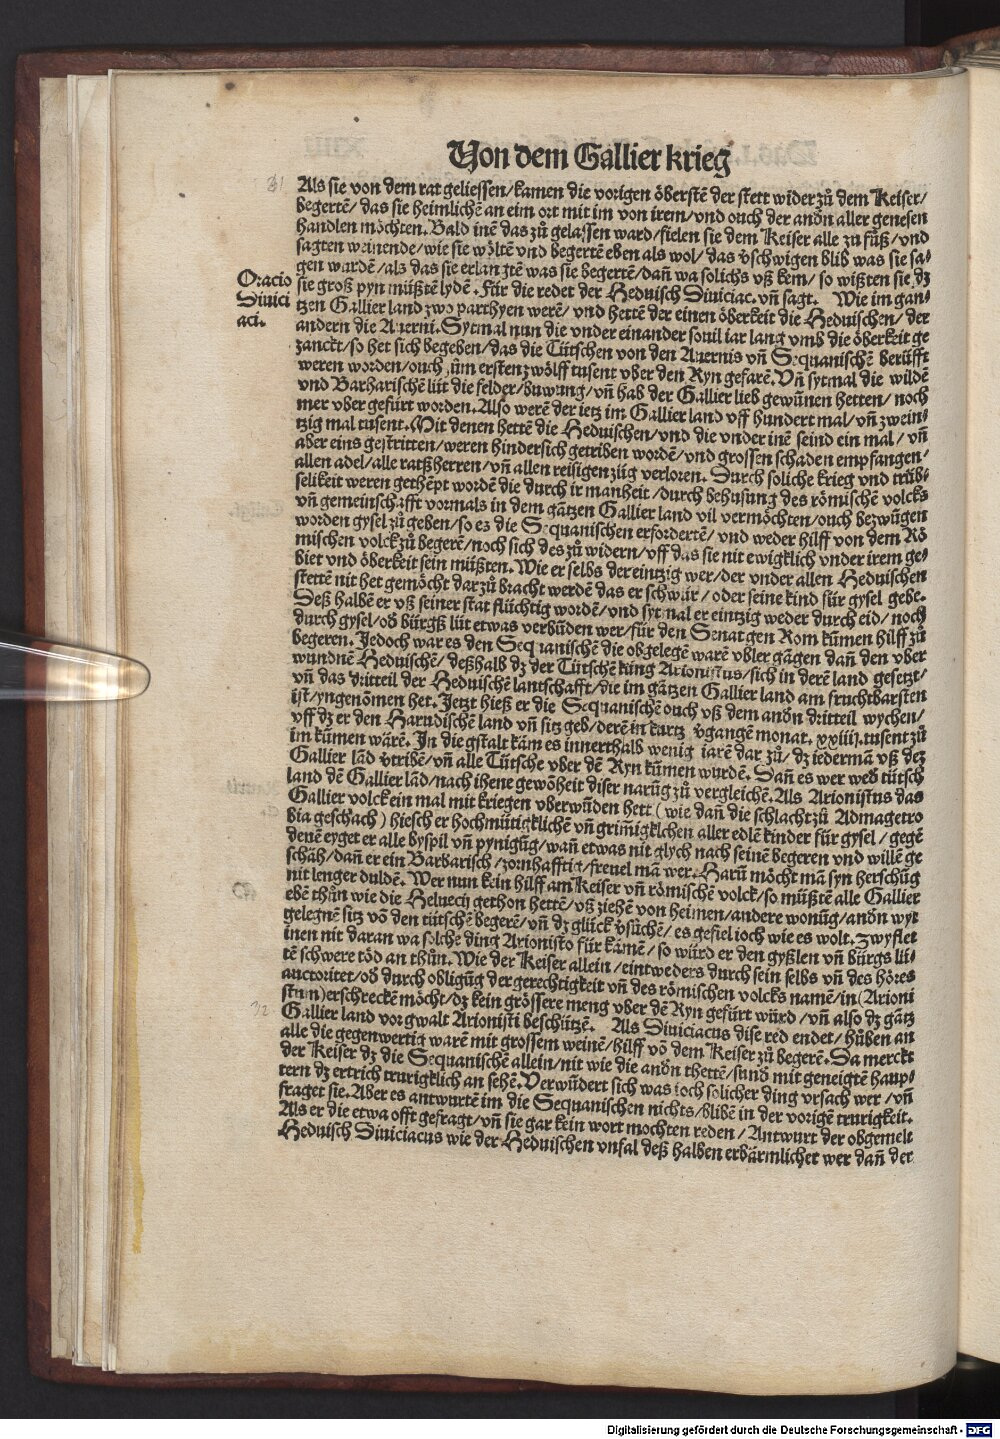 Von dem Gallier krieg
31
Als sie von dem rat geliessen/kamen die vorigen öberstē der stett wider zů dem Keiser/
begertē/das sie heimlichē an eim ort mit im von irem/vnd ouch der andn̄ aller genesen
handlen möchten. Bald inē das zů gelassen ward/fielen sie dem Keiser alle zu fůß/vnd
sagten weinende/wie sie wöltē vnd begertē eben als wol/das v̄schwigen blib was sie sa⸗
gen wurdē/als das sie erlangtē was sie begertē/dañ wa solichs vß kem/so wißten sie dz
Oracio
Diuici
aci.
sie groß pyn müßtē lydē. Für die redet der Heduisch Diuiciac. vñ sagt. Wie im gan⸗
tzen Gallier land zwo parthyen werē/vnd hettē der einen öberkeit die Heduischen/der
andern die Auerni. Sytmal nun die vnder einander souil iar lang vmb die öberkeit ge
zanckt/so het sich begeben/das die Tütschen von den Auernis vñ Sequanischē berüfft
weren worden/ouch zům ersten zwölff tusent vber den Ryn gefarē. Vñ sytmal die wildē
vnd Barbarischē lüt die felder/buwung/vñ hab der Gallier lieb gewunen hetten/noch
mer vber gefürt worden. Also werē der ietz im Gallier land vff hundert mal/vñ zwein⸗
tzig mal tusent. Mit denen hettē die Heduischen/vnd die vnder inē seind ein mal/vñ
aber eins gestritten/weren hindersich getriben wordē/vnd grossen schaden empfangen/
allen adel/alle ratßherren/vñ allen reisigen züg verloren. Durch soliche krieg vnd trüb⸗
selikeit weren gethēpt wordē die durch ir manheit/durch behusung des römischē volcks
vñ gemeinschafft vormals in dem gātzen Gallier land vil vermöchten/ouch bezwūgen
worden gysel zů geben/so es die Sequanischen erfordertē/vnd weder hilff von dem Rö
mischen volck zů begerē/noch sich des zů widern/vff das sie nit ewigklich vnder irem ge⸗
biet vnd öberkeit sein müßten. Wie er selbs der eintzig wer/der vnder allen Heduischen
stettē nit het gemöcht dar zů bracht werdē das er schwür/oder seine kind für gysel gebe.
Deß halbē er vß seiner stat flüchtig wordē/vnd sytmal er eintzig weder durch eid/noch
durch gysel/od̄ bürgß lüt etwas verbūden wer/für den Senat gen Rom kūmen hilff zů
begeren. Jedoch war es den Sequanischē die obgelegē warē vbler gāgen dañ den vber
wundnē Heduischē/deßhalb dz der Tütschē king Arionistus/sich in derē land gesetzt/
vñ das dritteil der Heduischē lantschafft/die im gātzen Gallier land am fruchtbarsten
ist/yngenōmen het. Jetzt hieß er die Sequanischē ouch vß dem andn̄ dritteil wychen/
vff dz er den Harudischē land vñ sitz geb/derē in kurtz v̄gangē monat. xxiiij. tusent zů
im kūmen wärē. In die gstalt käm es innerthalb wenig iarē dar zů/dz iedermā vß dez
Gallier lād v̄tribē/vñ alle Tütsche vber dē Ryn kūmen wurdē. Dañ es wer wed̄ tütsch
land dē Gallier lād/nach ihene gewōheit diser narūg zů vergleichē. Als Arionistus das
Gallier volck ein mal mit kriegen vberwūden hett (wie dañ die schlacht zů Admagetro
bia geschach) hiesch er hochmütigklichē vñ grim̄igklchen aller edlē kinder für gysel/gegē
denē eyget er alle byspil vñ pynigūg/wañ etwas nit glych nach seinē begeren vnd willē ge
schäh/dañ er ein Barbarisch/zornhafftig/freuel mā wer. Harū möcht mā syn herschūg
nit lenger duldē. Wer nun kein hilff am Keiser vñ römischē volck/so müßtē alle Gallier
ebē thůn wie die Heluecij gethon hettē/vß ziehē von heimen/andere wonūg/andn̄ wyt
gelegnē sitz vō den tütschē begerē/vñ dz glück v̄süchē/es gefiel ioch wie es wolt. Zwyflet
inen nit daran wa solche ding Arionisto für kämē/so würd er den gyßlen vñ bürgs lü⸗
tē schwere töd an thůn. Wie der Keiser allein/eintweders durch sein selbs vñ des höres
auctoritet/od̄ durch obligūg der gerechtigkeit vñ des römischen volcks namē/in (Arioni
stum) erschreckē möcht/dz kein grössere meng vber dē Ryn gefürt würd/vñ also dz gātz
32
Gallier land vor gwalt Arionisti beschützē. Als Diuiciacus dise red endet/hūben an
alle die gegenwertig warē mit grossem weinē/hilff vō dem Keiser zů begerē. Da merckt
der Keiser dz die Sequanischē allein/nit wie die andn̄ thettē/sund̄ mit geneigtē haup⸗
tern dz ertrich trurigklich an sehē. Verwūdert sich was ioch solicher ding vrsach wer/vñ
fraget sie. Aber es antwurtē im die Sequanischen nichts/blibē in der vorigē trurigkeit.
Als er die etwa offt gefragt/vñ sie gar kein wort mochten reden/Antwurt der obgemelt
Heduisch Diuiciacus wie der Heduischen vnfal deß halben erbärmlicher wer dañ der
Digitalisierung gefördert durch die Deutsche Forschungsgemeinschaft - DFG